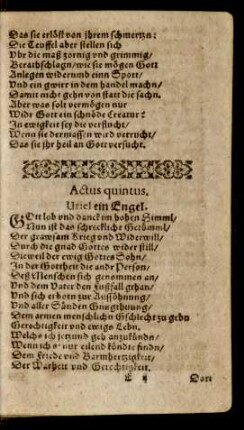 Das sie erlöst van jhrem schmertzn:
Die Teuffel aber stellen sich
Vbr die maß zornig vnd grimmig/
Berathschlagn/wie sie mögen Gott
Anlegen widerumb einn Spott/
Vnd ein gwirr in dem handel machn/
Damit nicht gehn von statt die sachn.
Aber was solt vermögen nur
Widr Gott ein schnöde Creatur?
In ewigkeit sey die verflucht/
Wenn sie dermassen wird verrucht/
Das sie jhr heil an Gott versucht.
Actus quintus.
Uriel ein Engel.
GOtt lob vnd danck im hohen Himml/
Nun ist das schreckliche Getümml/
Der grawsam Krieg vnd Widerwill/
Durch die gnad Gottes wider still/
Dieweil der ewig Gottes Sohn/
In der Gottheit die ander Person/
Deß Menschen sich angenommen an/
Vnd dem Vater den Fußfall gthan/
Vnd sich erbotn zur Aussöhnung/
Vnd aller Sünden Gnugthuung/
Dem armen menschlichn Gschlecht zu gebn
Gerechtigkeit vnd ewigs Lebn.
Welchs ich jetzund geh anzukündn/
Wenn ich s' nur eilend köndte findn/
Dem Friede vnd Barmhertzigkeit/
Der Warheit vnd Gerechtigkeit.
Dort